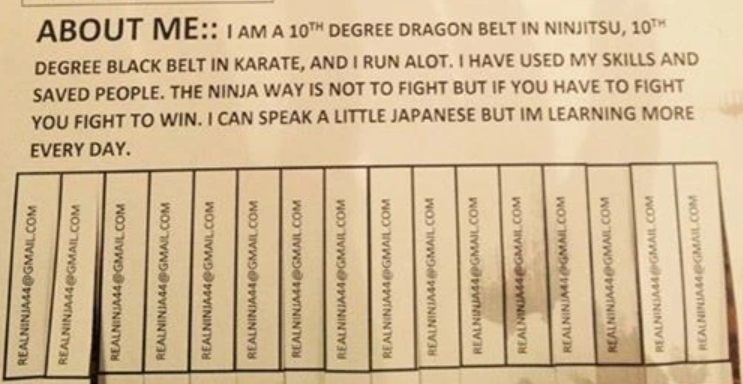 ABOUT ME:: I AM A 10TH DEGREE DRAGON BELT IN NINJITSU, 10TH
DEGREE BLACK BELT IN KARATE, AND I RUN ALOT. I HAVE USED MY SKILLS AND
SAVED PEOPLE. THE NINJA WAY IS NOT TO FIGHT BUT IF YOU HAVE TO FIGHT
YOU FIGHT TO WIN. I CAN SPEAK A LITTLE JAPANESE BUT IM LEARNING MORE
EVERY DAY.
REALNINJA44@GMAIL.COM
REALNINJA44@GMAIL.COM
REALNINJA44@GMAIL.COM
REALNINJA44@GMAIL.COM
REALNINJA44@GMAIL.COM
REALNINJA44@GMAIL.COM
REALNINJA44@GMAIL.COM
REALNINJA44@GMAIL.COM
REALNINJA44@GMAIL.COM
REALNINJA44@GMAIL.COM
REALNINJA44@GMAIL.COM
REALNINJA44@GMAIL.COM
REALNINJA44@GMAIL.COM
REALNINJA44@GMAIL.COM
REALNINJA44@GMAIL.COM
REALNINJA44@GMAIL.COM